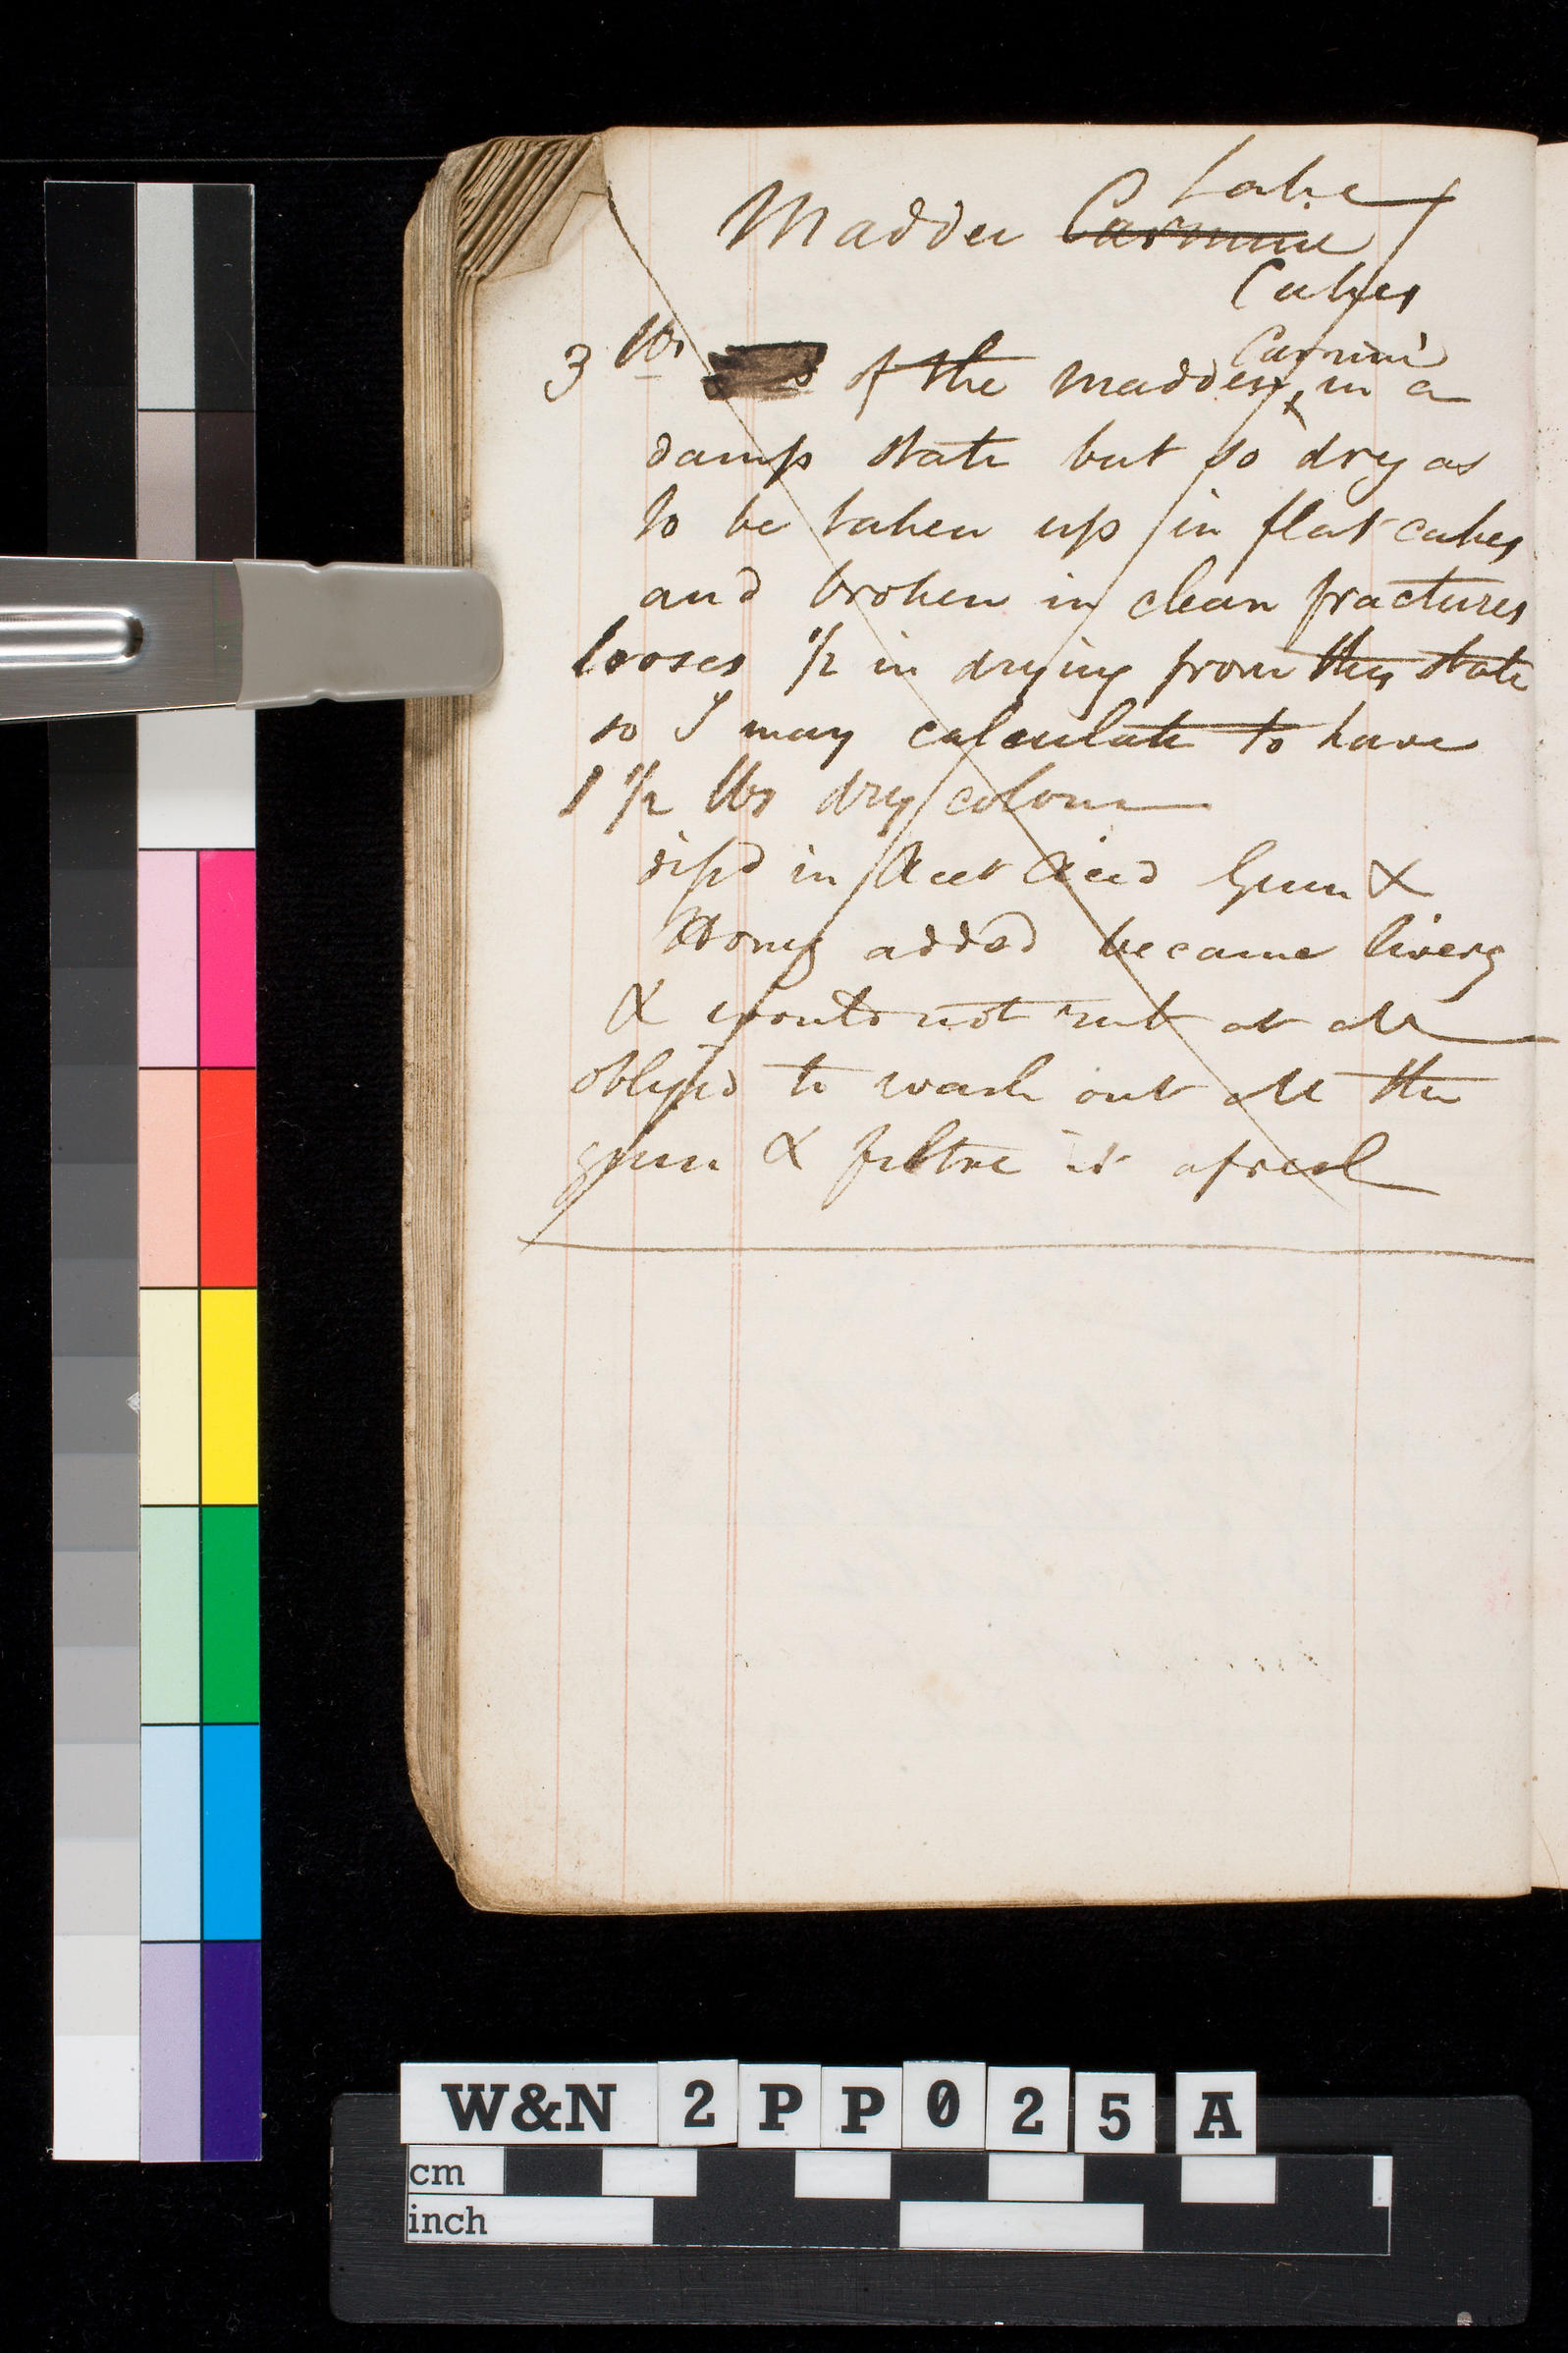 Lake
Madder Carmine
Cakes
Carmine
3 lbs of the madder in a
damp state but so dry as
to be taken up in flat cakes
and broken in clean fractures
looses 1/2 in drying from this state
so I may calculate to have
1 1/2 lbs dry colour
in Acet Acid Gum &
Honey added became livery
& would not rub at all
obliged to wash out all the
gum & filtre it afresh
W&N 2PP025 A
cm
inch